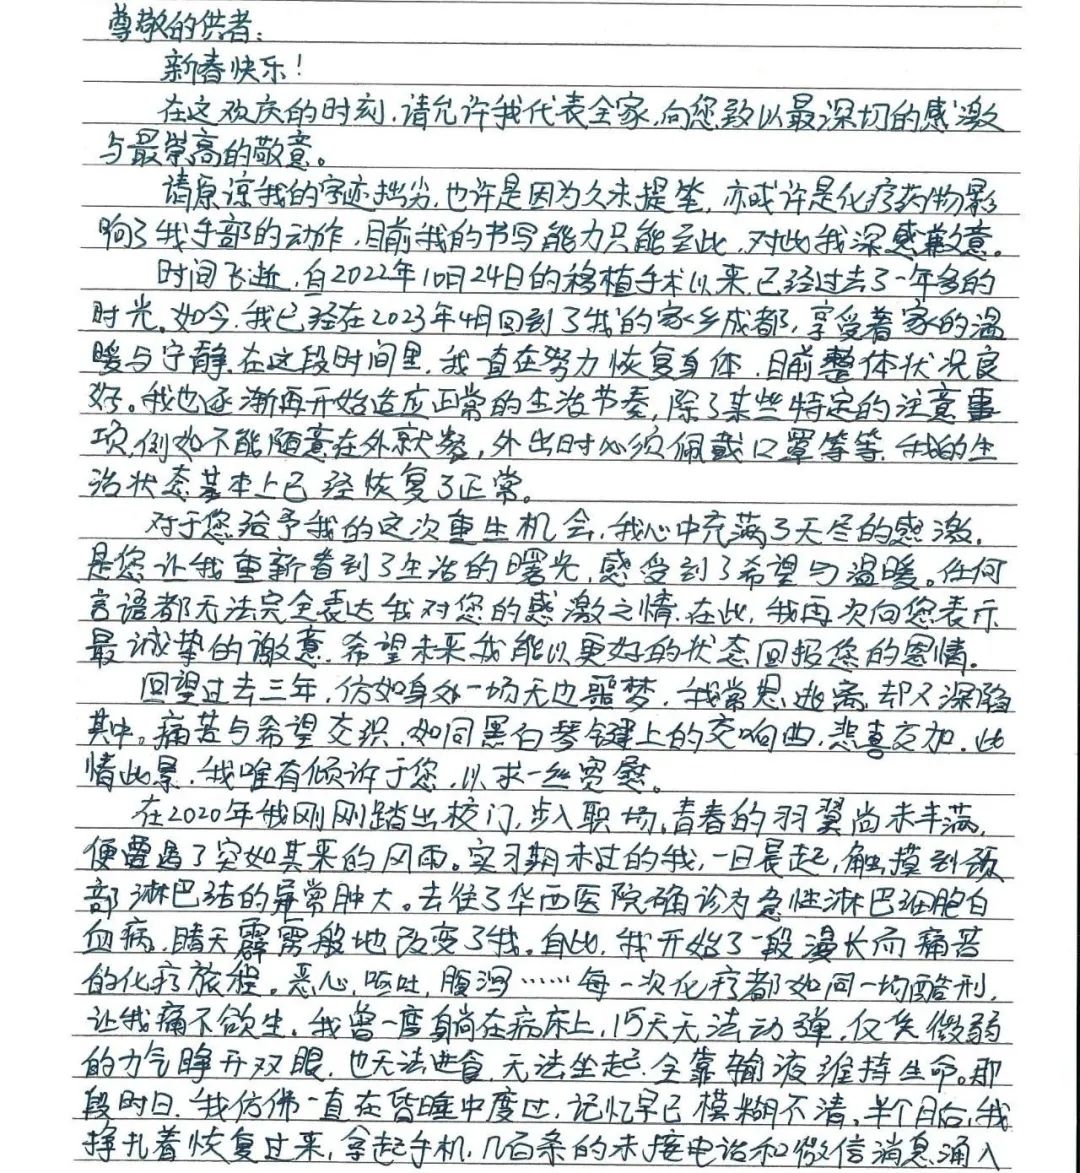 尊敬的供者:
新春快乐!
在这欢庆的时刻,请允许我代表全家,向您致以最深切的感激
与最崇高的敬意。
请原谅我的字迹拙劣,也许是因为久未提笔,亦或许是化疗药物影
响了我手部的动作,目前我的书写能力只能至此,对此我深感歉意。
时间飞逝,自2022年10月24日的移植手术以来,已经过去了一年多的
时光。如今,我已经在2023年4月回到了我的家乡成都,享受着家的温
暖与宁静。在这段时间里,我一直在努力恢复身体,目前整体状况良
好。我也逐渐再开始适应正常的生活节奏,除了某些特定的注意事
项,例如不能随意在外就餐,外出时必须佩戴口罩等等,我的生
活状态基本上已经恢复了正常。
对于您给予我的这次重生机会,我心中充满了无尽的感激,
是您让我重新看到了生活的曙光,感受到了希望与温暖。任何
言语都无法完全表达我对您的感激之情,在此,我再次向您表示
最诚挚的谢意,希望未来我能以更好的状态回报您的恩情。
回望过去三年,仿如身处一场无边噩梦,我常思逃离,却又深陷
其中。痛苦与希望交织,如同黑白琴键上的交响曲,悲喜交加,此
情此景,我唯有倾诉于您,以求一丝宽慰。
在2020年我刚刚踏出校门,步入职场,青春的羽翼尚未丰满,
便遭遇了突如其来的风雨。实习期未过的我,一日晨起,触摸到颈
部淋巴结的异常肿大。去往了华西医院确诊为急性淋巴细胞白
血病,晴天霹雳般地改变了我。自此,我开始了一段漫长而痛苦
的化疗旅程。恶心,呕吐,腹泻……每一次化疗都如同一场酷刑,
让我痛不欲生。我曾一度躺在病床上,15天无法动弹,仅凭微弱
的力气睁开双眼,也无法进食,无法坐起,全靠输液维持生命。那
段时日,我仿佛一直在昏睡中度过,记忆早已模糊不清,半个月后,我
挣扎着恢复过来,拿起手机,几百条的未接电话和微信消息涌入